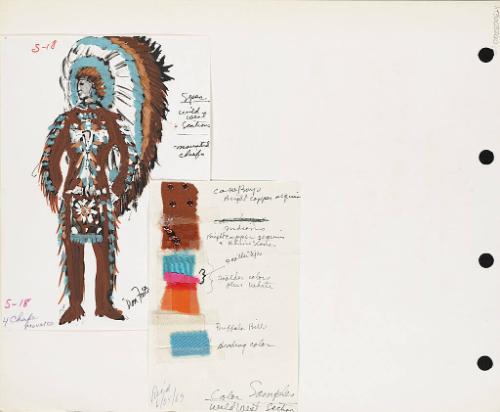 S-18
Spec
wild
west
Section
mounted
chiefs
S-18
4 Chiefs
mounted
Don Foote
Cowboys
Bright copper sequin
Indians
Bright copper sequin
+ Rhinestones
feather tips
beadlet colors
plus white
Buffalo Bill
beading color
Color Samples
wild west section